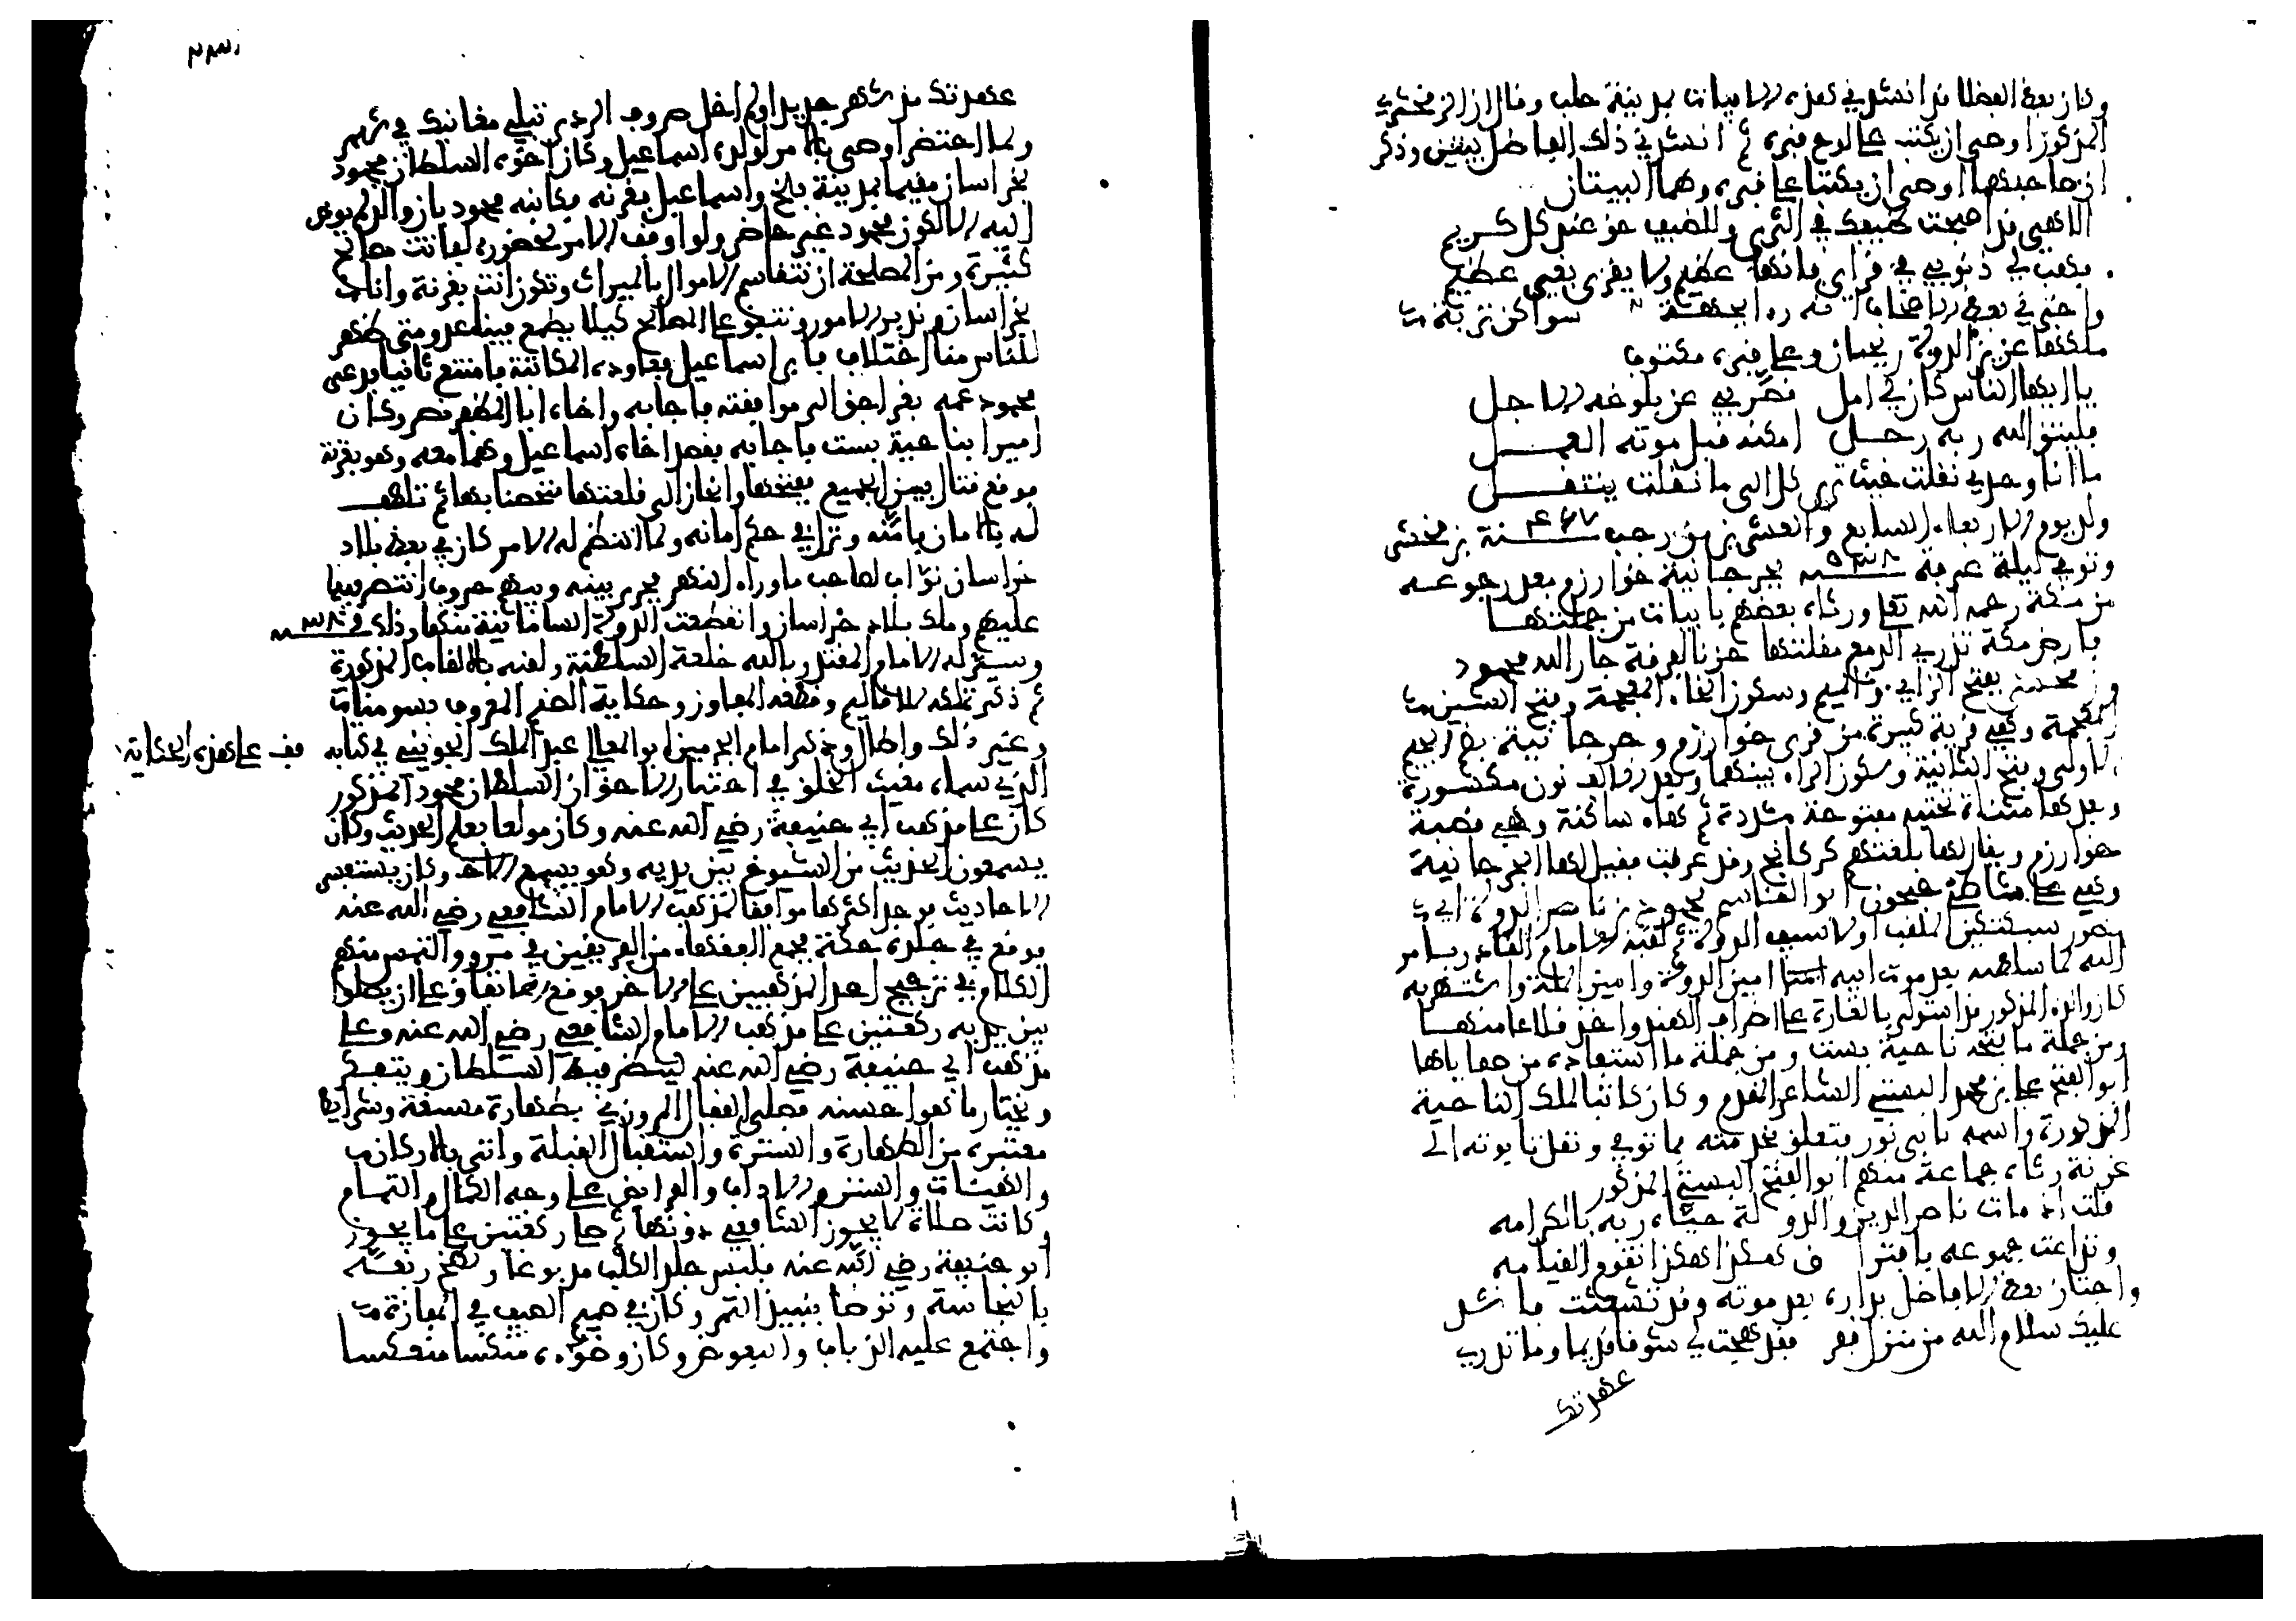 وكان بعض الفضلا قد انشدني هذه الابيات بمدينة حلب وقال ان الزمخشري
المذكور اوصى ان يكتب على لوح قبره ثم انشدني ذلك الفاضل بيتين وذكر
ان صاحبهما اوصى ان يكتبا على قبره وهما البيتان
الاهي قد اصبحت ضيفك في الثرى وللضيف حق عند كل كريم
فهب لي ذنوبي في قراي فانها عظيم ولا يقرى بغير عظيم
واخبرني بعض الاصحاب انه راى بجزيرة سواكن تربة
ملكها عزيز الدولة ريحان وعلى قبره مكتوب
يا ايها الناس كان لي امل قصر بي عن بلوغه الاجل
فليتق الله ربه رجل امكنه قبل موته العمل
ما انا وحدي نقلت حيث ترى كل الى ما نقلت ينتقل
ولد يوم الاربعاء السابع والعشرين من رجب سنة ٤٦٧ بزمخشر
وتوفي ليلة عرفة ٥٣٨ بجرجانية خوارزم بعد رجوعه
من مكة رحمه الله تعلى ورثاه بعضهم بابيات من جملتها
فارض مكة تذري الدمع مقلتها حزنا لفرقة جار الله محمود
وزمخشر بفتح الزاي والميم وسكون الخاء المعجمة وفتح الشين
المعجمة وهي قرية كبيرة من قرى خوارزم وجرجانية بضم الجيم
الاولى وفتح الثانية وسكون الراء بينهما وبعد الالف نون مكسورة
وبعدها مثناة تحتية مفتوحة مشددة ثم هاء ساكنة وهي قصبة
خوارزم ويقال لها بلغتهم كركانج وقد عربت فقيل لها الجرجانية
وهي على شاطئ جيحون ابو القاسم محمود بن ناصر الدولة ابي
منصور سبكتكين الملقب اولا سيف الدولة ثم لقبه الامام القادر بامر
الله لما سلطنه بعد موت ابيه امين الدولة وامين الملة واشتهر به
كان والده المذكور قد استولى بالغارة على اطراف الهند واخذ قلاعا منها
ومن جملة ما فتحه ناحية بست ومن جملة ما استفاده من صفاياها
ابو الفتح علي بن محمد البستي الشاعر المقدم وكان كاتبا لملك الناحية
المذكورة واسمه باي تور فتعلق بخدمته فما توفي ونقل تابوته الى
غزنة رثاه جماعة منهم ابو الفتح البستي المذكور
قلت اذ مات ناصر الدين والدو لة حياه ربه بالكرامه
وتداعت جموعه بافترا ق هكذا هكذا تقوم القيامه
واجتاز بعض الافاضل بداره بعد موته وقد تشعثت فانشد
عليك سلام الله من منزل قفر فقد هجت لي شوقا قديما وما تدري
عهدتك
عهدتك من شهر جديدا ولم اخل صروف الردى تبلي مغانيك في شهر
ولما احتضر اوصى بالامر لولده اسماعيل وكان اخوه السلطان محمود
بخراسان مقيما بمدينة بلخ واسماعيل بغزنه فكاتبه محمود بان والدي لم يوص
اليه الا لكون محمود غير حاضر ولو اوقف الامر لحضوره لفاتت مصالح
كثيرة ومن المصلحة ان نتقاسم الاموال بالميراث وتكون انت بغزنة وانا
بخراسان وندبر الامور ونتفق على المصالح كيلا يطمع فينا عدو ومتى ظهر
للناس منا اختلاف فابى اسماعيل فعاوده المكاتبة فامتنع ثانيا فدعى
محمود عمه بغراجق الى موافقته فاجابه واخاه ابا المظفر نصر وكان
اميرا بناحية بست فاجابه بقصد اخاه اسماعيل وهما معه وهو بغزنة
فوقع قتال بين الجميع ففتحها وانحاز الى قلعتها متحصنا بها ثم تلطف
له بالامان فامنه ونزل في حكم امانه ولما انتظم له الامر كان في بعض بلاد
خراسان نواب لصاحب ماوراء النهر فجرى بينه وبينهم حروب انتصر فيها
عليهم وملك بلاد خراسان وانقطعت الدولة السامانية منها وذلك في ٣٨٩
وسير له الامام المقتدر بالله خلعة السلطنة ولقبه بالالقاب المذكورة
ثم ذكر تملكه للاقاليم وقطعه المفاوز وحكاية الصنم المعروف بسومنات
وغير ذلك واطال وذكر امام الحرمين ابو المعالي عبد الملك الجويني في كتابه
قف على هذه الحكاية
الذي سماه مغيث الخلق في اختيار الاحق ان السلطان محمود المذكور
كان على مذهب ابي حنيفة رضي الله عنه وكان مولعا بعلم الحديث وكان
يسمعون الحديث من الشيوخ بين يديه وهو يسمع وكان يستفسر
الاحاديث فوجد اكثرها موافقا لمذهب الامام الشافعي رضي الله عنه
فوقع في خلده حكة فجمع الفقهاء من الفريقين في مرو والتمس منهم
الكلام في ترجيح احد المذهبين على الاخر فوقع الاتفاق على ان يصلوا
بين يديه ركعتين على مذهب الامام الشافعي رضي الله عنه وعلى
مذهب ابي حنيفة رضي الله عنه لينظر فيه السلطان ويتفكر
ويختار ما هو احسنه فصلى القفال المروزي بطهارة مسبغة وشرايط
معتبره من الطهارة والسترة واستقبال القبلة واتى بالاركان
والهيئات والسنن والاداب والفرائض على وجه الكمال والتمام
وكانت صلاة لا يجوز الشافعي دونها ثم صلى ركعتين على ما يجوز
ابو حنيفة رضي الله عنه فلبس جلد الكلب مدبوغا ولطخ ربعه
بالنجاسة وتوضا بنبيذ التمر وكان في صميم الصيف في المفازة
واجتمع عليه الذباب والبعوض وكان وضوءه منكسا منعكسا